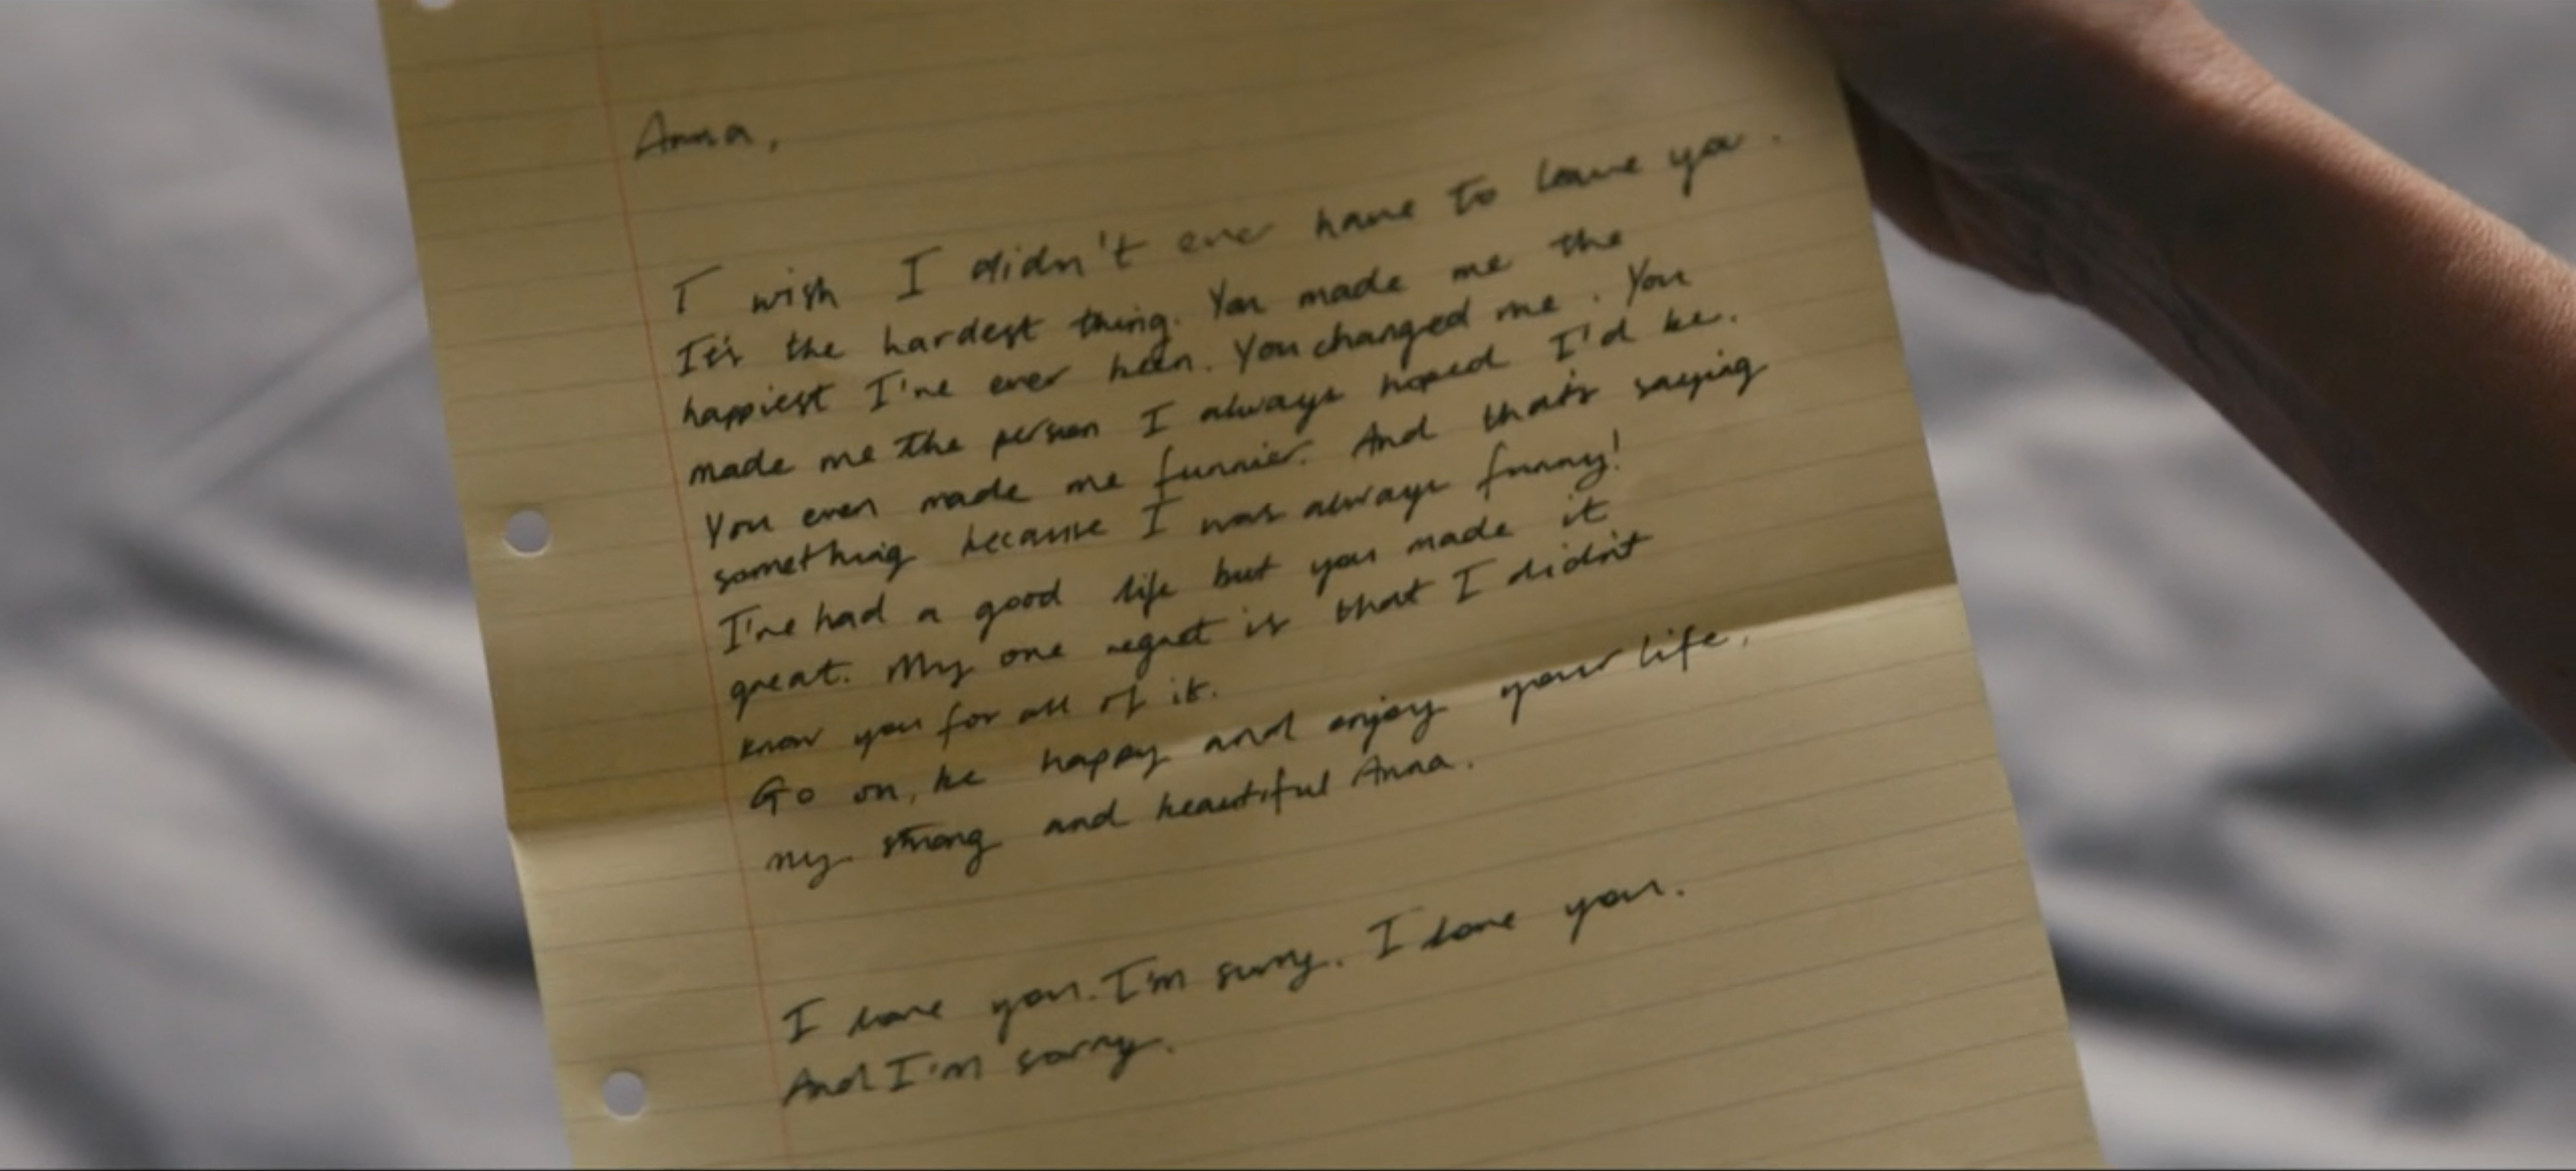 Anna,
I wish I didn't ever have to leave you.
It's the hardest thing. You made me the
happiest I've ever been. You changed me. You
made me the person I always hoped I'd be.
You even made me funnier. And that's saying
something because I was always funny!
I've had a good life but you made it
great. My one regret is that I didn't
know you for all of it.
Go on, be happy and enjoy your life,
my strong and beautiful Anna.
I love you. I'm sorry. I love you.
And I'm sorry.